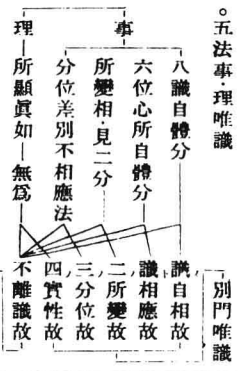 。五法事・理唯識
別門唯識
事
八識自體分
識自相故
六位心所自體分
識相應故
所變相・見二分
二所變故
分位差別不相應法
三分位故
理
所顯眞如
無爲
四實性故
不離識故